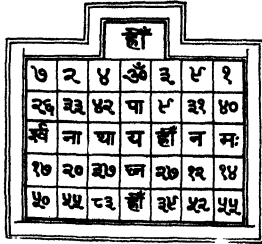 ह्रीं
७ २ ४ ॐ ३ ९ १
२६ ३३ ४२ पा ९ ३१ ४०
ना था य ह्रीं न मः
१७ २० २७ घ्न २७ १२ १४
५० ५५ ८३ ह्रीं ३९ ५२ ५५